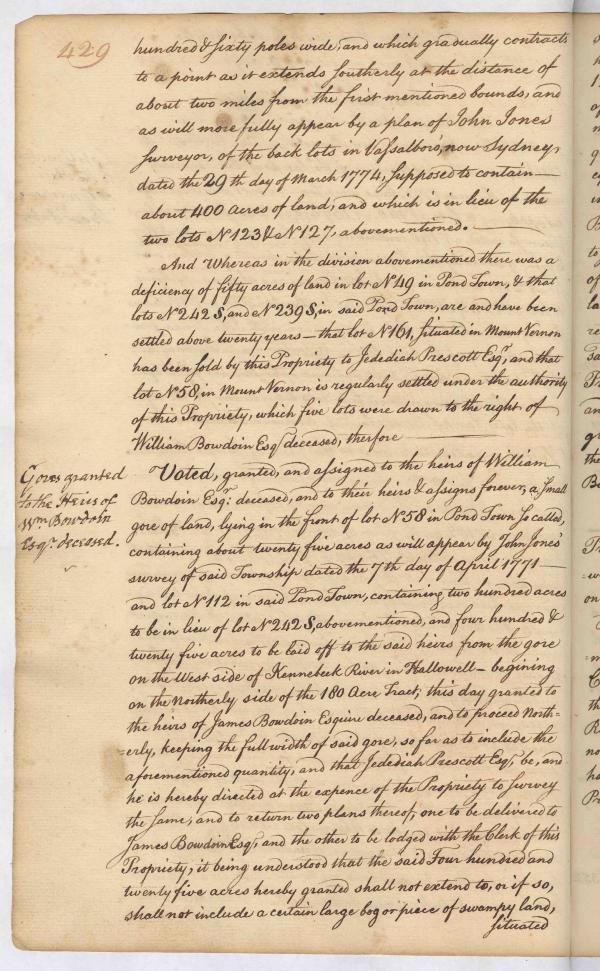 429
hundred & sixty poles wide, and which gradually contracts
to a point as it extends southerly at the distance of
about two miles from the first mentioned bounds, and
as will more fully appear by a plan of John Jones
Surveyor, of the back lots in Vassalboro', now Sydney,
dated the 29th day of March 1774, supposed to contain—
about 400 acres of land, and which is in lieu of the
two lots No 123 & No 127, abovementioned.
And Whereas in the division abovementioned there was a
deficiency of fifty acres of land in lot No 49 in Pond Town, & that
lots No 242 S, and No 239 S, in said Pond Town, are and have been
settled above twenty years— that lot No 161, situated in Mount Vernon
has been sold by this Propriety to Jedediah Prescott Esqr, and that
lot No 58, in Mount Vernon is regularly settled under the authority
of this Propriety, which five lots were drawn to the right of
William Bowdoin Esq deceased, therfore
Gores granted
to the Heirs of
Wm Bowdoin
Esqr. deceased.
Voted, granted, and assigned to the heirs of William
Bowdoin Esqr: deceased, and to their heirs & assigns forever, a small
gore of land, lying in the front of lot No 58 in Pond Town so called,
containing about twenty five acres as will appear by John Jones'
survey of said Township dated the 7th day of April 1771—
and lot No 112 in said Pond Town, containing two hundred acres
to be in lieu of lot No 242 S, abovementioned, and four hundred &
twenty five acres to be laid off to the said heirs from the gore
on the West side of Kennebeck River in Hallowell— begining
on the Northerly side of the 180 Acre Tract, this day granted to
the heirs of James Bowdoin Esquire deceased, and to proceed North-
=erly, keeping the full width of said gore, so far as to include the
aforementioned quantity, and that Jedediah Prescott Esqr, be, and
he is hereby directed at the expence of the Propriety to survey
the same, and to return two plans thereof, one to be delivered to
James Bowdoin Esqr, and the other to be lodged with the Clerk of this
Propriety, it being understood that the said Four hundred and
twenty five acres hereby granted shall not extend to, or if so,
shall not include a certain large bog or piece of swampy land,
situated